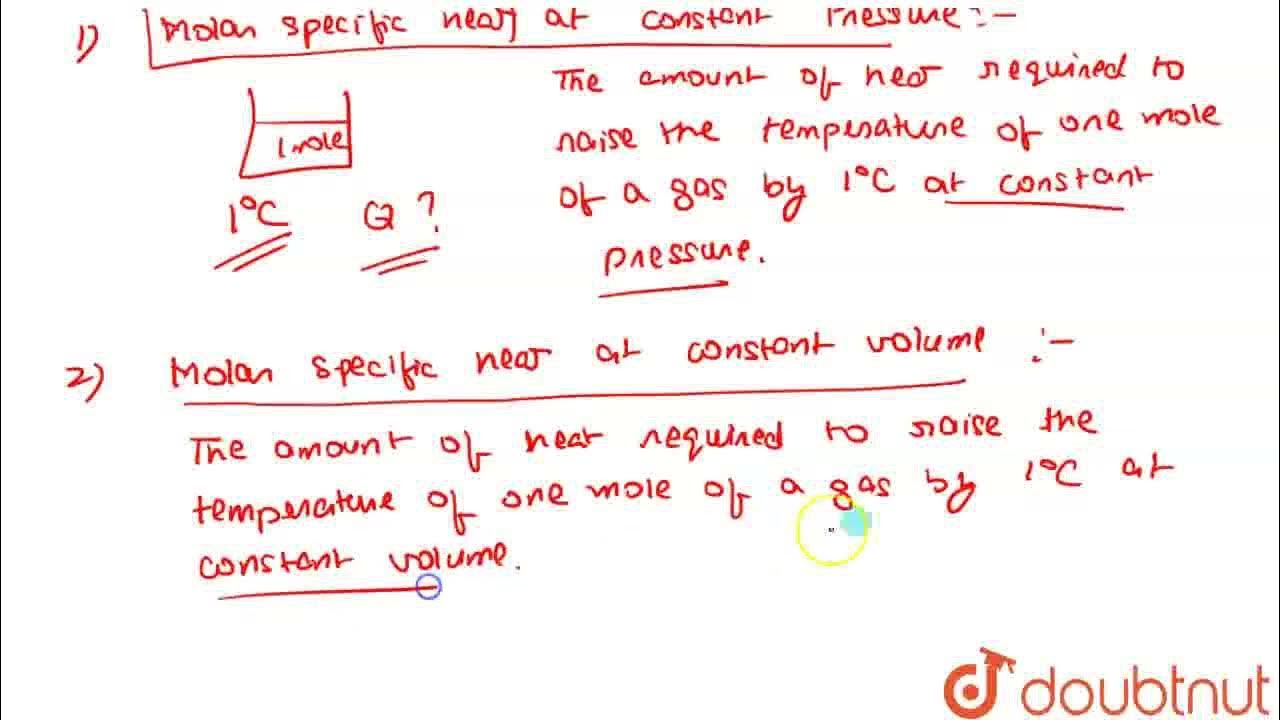 1) Molar specific heat at constant Pressure :-
The amount of heat required to
1 mole
raise the temperature of one mole
of a gas by 1°C at constant
1°C Q ?
pressure.
2) Molar specific heat at constant volume :-
The amount of heat required to raise the
temperature of one mole of a gas by 1°C at
constant volume.
doubtnut